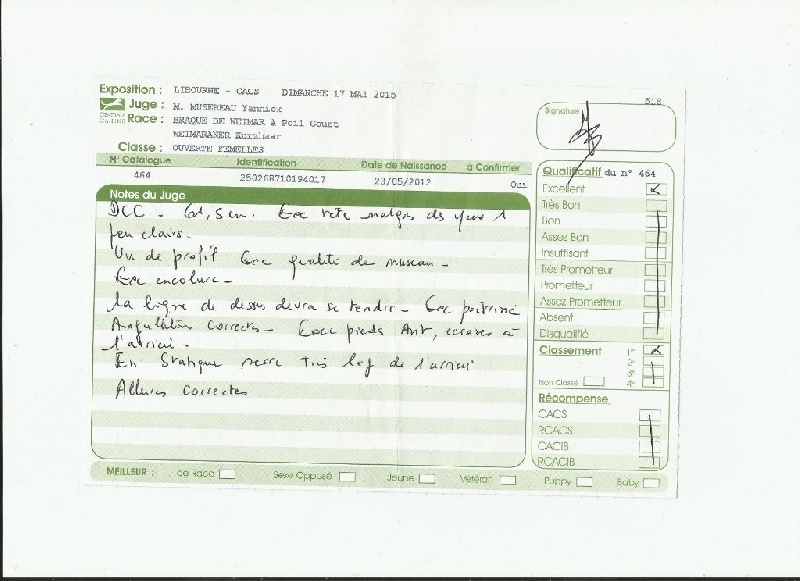 Exposition : LIBOURNE - CACS DIMANCHE 17 MAI 2015
CENTRALE CANINE
Juge : M. MUSEREAU Yannick
Race : BRAQUE DE WEIMAR à Poil Court
WEIMARANER Kurzhaar
Classe : OUVERTE FEMELLES
N° Catalogue Identification Date de Naissance à Confirmer
464 250268710194017 23/05/2012 Oui
Notes du Juge
DCC - Exc tete malgré des yeux 1
peu clairs.
Vu de profil Exc qualité de museau -
Exc encolure -
La ligne de dessus devra se tendre - Exc poitrine
Angulations correctes - Exc pieds Ant, écrasés à
l'arrière.
En Statique serré très de l'arrière
Allures correctes
518
Signature
Qualificatif du n° 464
Excellent
Très Bon
Bon
Assez Bon
Insuffisant
Très Prometteur
Prometteur
Assez Prometteur
Absent
Disqualifié
Classement 1°
2°
3°
Non Classé 4°
Récompense
CACS
RCACS
CACIB
RCACIB
MEILLEUR : de Race Sexe Opposé Jeune Vétéran Puppy Baby